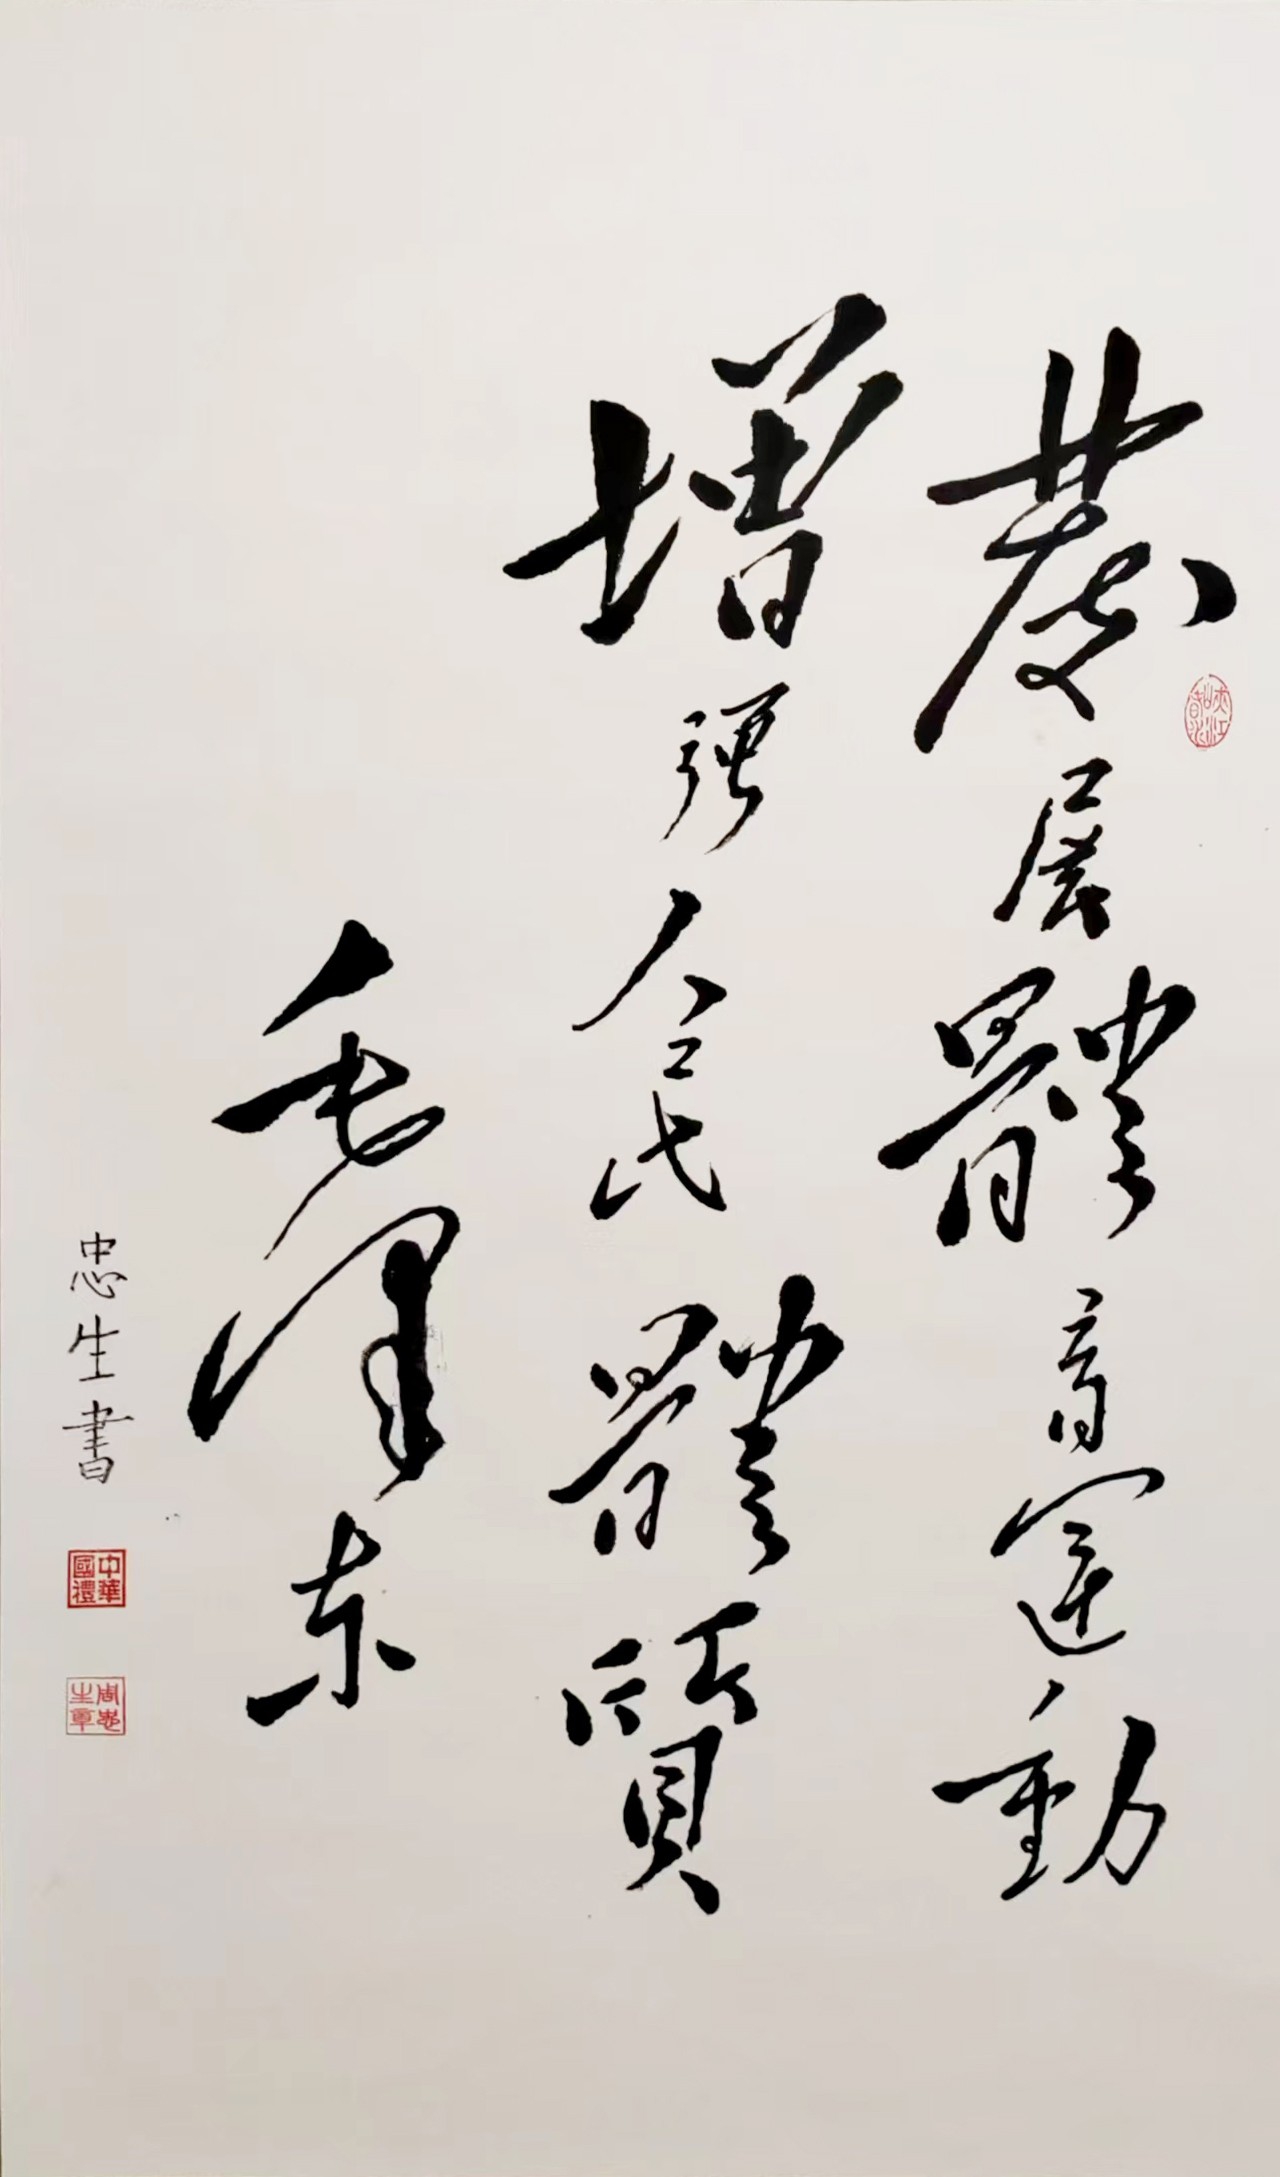 發展體育運動
增強人民體質
毛澤東
忠生書
中華國禮
周忠生章